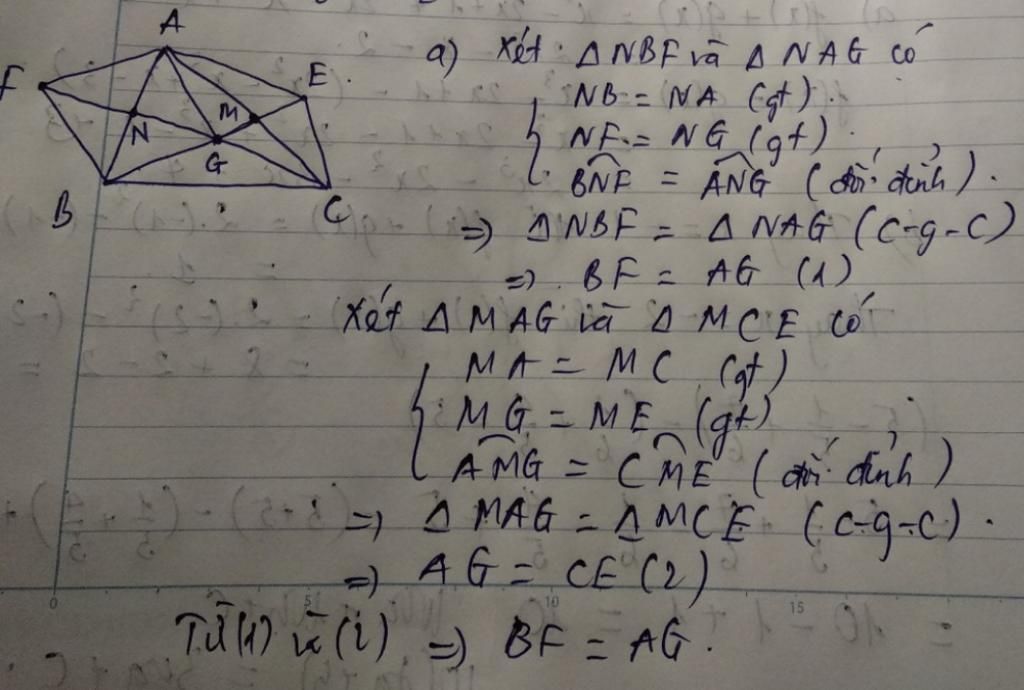 A
F
E
N
M
G
B
C
a) Xét ΔNBF và ΔNAG có
NB = NA (gt).
NF = NG (gt).
BNF = ANG (đối đỉnh).
=) ΔNBF = ΔNAG (c-g-c)
=) BF = AG (1)
Xét ΔMAG và ΔMCE có
MA = MC (gt)
MG = ME (gt)
AMG = CME (đối đỉnh)
=) ΔMAG = ΔMCE (c-g-c).
=) AG = CE (2)
0 5 10 15
Từ (1) và (2) =) BF = AG.